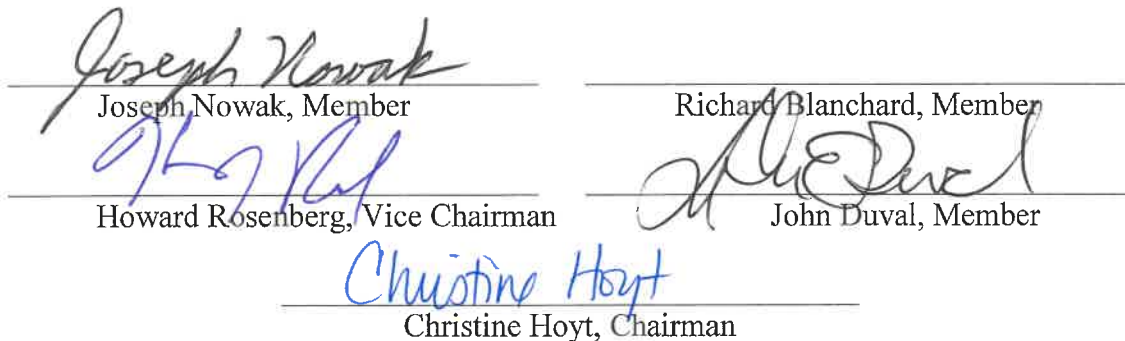 Joseph Nowak
Joseph Nowak, Member
Richard Blanchard, Member
Howard Rosenberg, Vice Chairman
John Duval, Member
Christine Hoyt
Christine Hoyt, Chairman